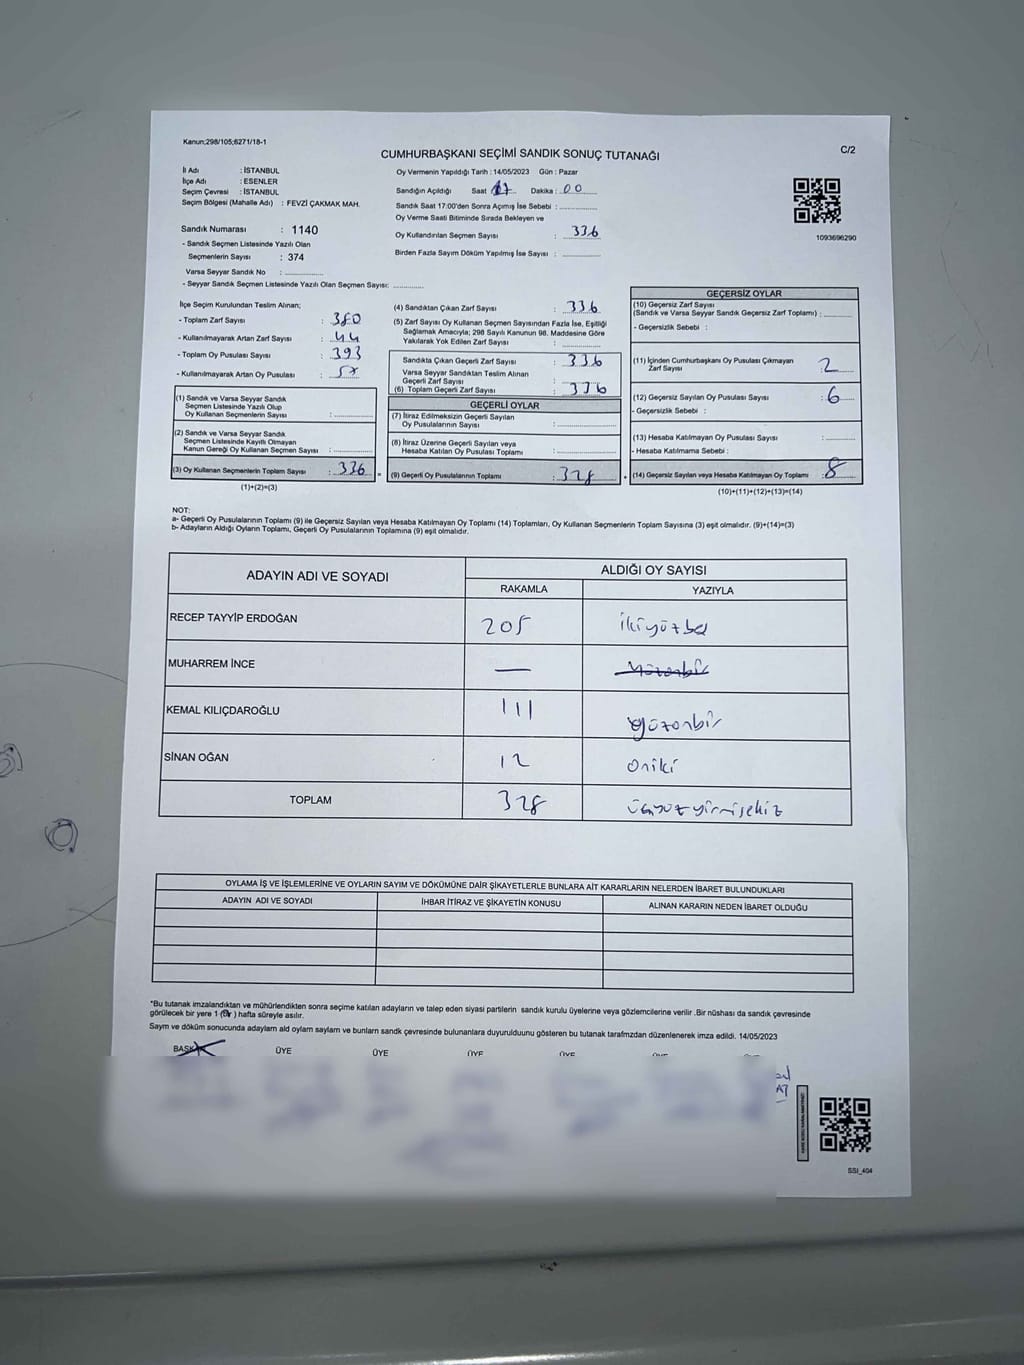 Kanun;298/105;6271/18-1
C/2
CUMHURBAŞKANI SEÇİMİ SANDIK SONUÇ TUTANAĞI
İl Adı : İSTANBUL
İlçe Adı : ESENLER
Seçim Çevresi : İSTANBUL
Seçim Bölgesi (Mahalle Adı) : FEVZİ ÇAKMAK MAH.
Sandık Numarası : 1140
- Sandık Seçmen Listesinde Yazılı Olan
Seçmenlerin Sayısı : 374
Varsa Seyyar Sandık No : ............
- Seyyar Sandık Seçmen Listesinde Yazılı Olan Seçmen Sayısı: ............
Oy Vermenin Yapıldığı Tarih : 14/05/2023 Gün : Pazar
Sandığın Açıldığı Saat 17 Dakika : 00
Sandık Saat 17:00'den Sonra Açmış İse Sebebi : ............
Oy Verme Saati Bitiminde Sırada Bekleyen ve
Oy Kullandırılan Seçmen Sayısı : 336
Birden Fazla Sayım Döküm Yapılmış İse Sayısı : ............
1093696290
İlçe Seçim Kurulundan Teslim Alınan;
- Toplam Zarf Sayısı : 380
- Kullanılmayarak Artan Zarf Sayısı : 44
- Toplam Oy Pusulası Sayısı : 393
- Kullanılmayarak Artan Oy Pusulası : 57
(1) Sandık ve Varsa Seyyar Sandık
Seçmen Listesinde Yazılı Olup
Oy Kullanan Seçmenlerin Sayısı : ............
(2) Sandık ve Varsa Seyyar Sandık
Seçmen Listesinde Kayıtlı Olmayan
Kanun Gereği Oy Kullanan Seçmen Sayısı : ............
(3) Oy Kullanan Seçmenlerin Toplam Sayısı : 336
(1)+(2)=(3)
(4) Sandıktan Çıkan Zarf Sayısı : 336
(5) Zarf Sayısı Oy Kullanan Seçmen Sayısından Fazla İse, Eşitliği
Sağlamak Amacıyla; 298 Sayılı Kanunun 98. Maddesine Göre
Yakılarak Yok Edilen Zarf Sayısı : ............
Sandıkta Çıkan Geçerli Zarf Sayısı : 336
Varsa Seyyar Sandıktan Teslim Alınan
Geçerli Zarf Sayısı : ............
(6) Toplam Geçerli Zarf Sayısı : 336
GEÇERLİ OYLAR
(7) İtiraz Edilmeksizin Geçerli Sayılan
Oy Pusulalarının Sayısı : ............
(8) İtiraz Üzerine Geçerli Sayılan veya
Hesaba Katılan Oy Pusulası Toplamı : ............
= (9) Geçerli Oy Pusulalarının Toplamı : 328
GEÇERSİZ OYLAR
(10) Geçersiz Zarf Sayısı
(Sandık ve Varsa Seyyar Sandık Geçersiz Zarf Toplamı) : ............
- Geçersizlik Sebebi :
(11) İçinden Cumhurbaşkanı Oy Pusulası Çıkmayan
Zarf Sayısı : 2
(12) Geçersiz Sayılan Oy Pusulası Sayısı : 6
- Geçersizlik Sebebi :
(13) Hesaba Katılmayan Oy Pusulası Sayısı : ............
- Hesaba Katılmama Sebebi :
+ (14) Geçersiz Sayılan veya Hesaba Katılmayan Oy Toplamı : 8
(10)+(11)+(12)+(13)=(14)
NOT:
a- Geçerli Oy Pusulalarının Toplamı (9) ile Geçersiz Sayılan veya Hesaba Katılmayan Oy Toplamı (14) Toplamları, Oy Kullanan Seçmenlerin Toplam Sayısına (3) eşit olmalıdır. (9)+(14)=(3)
b- Adayların Aldığı Oyların Toplamı, Geçerli Oy Pusulalarının Toplamına (9) eşit olmalıdır.
ADAYIN ADI VE SOYADI ALDIĞI OY SAYISI
RAKAMLA YAZIYLA
RECEP TAYYİP ERDOĞAN 205 ikiyüzbeş
MUHARREM İNCE — yüzonbir
KEMAL KILIÇDAROĞLU 111 yüzonbir
SİNAN OĞAN 12 oniki
TOPLAM 328 üçyüzyirmisekiz
OYLAMA İŞ VE İŞLEMLERİNE VE OYLARIN SAYIM VE DÖKÜMÜNE DAİR ŞİKAYETLERLE BUNLARA AİT KARARLARIN NELERDEN İBARET BULUNDUKLARI
ADAYIN ADI VE SOYADI İHBAR İTİRAZ VE ŞİKAYETİN KONUSU ALINAN KARARIN NEDEN İBARET OLDUĞU
*Bu tutanak imzalandıktan ve mühürlendikten sonra seçime katılan adayların ve talep eden siyasi partilerin sandık kurulu üyelerine veya gözlemcilerine verilir .Bir nüshası da sandık çevresinde
görülecek bir yere 1 (Bir ) hafta süreyle asılır.
Sayım ve döküm sonucunda adayların ald oyların sayların ve bunların sandk çevresinde bulunanlara duyurulduunu gösteren bu tutanak tarafmzdan düzenlenerek imza edildi. 14/05/2023
BAŞKAN ÜYE ÜYE ÜYE ÜYE
SSI_404